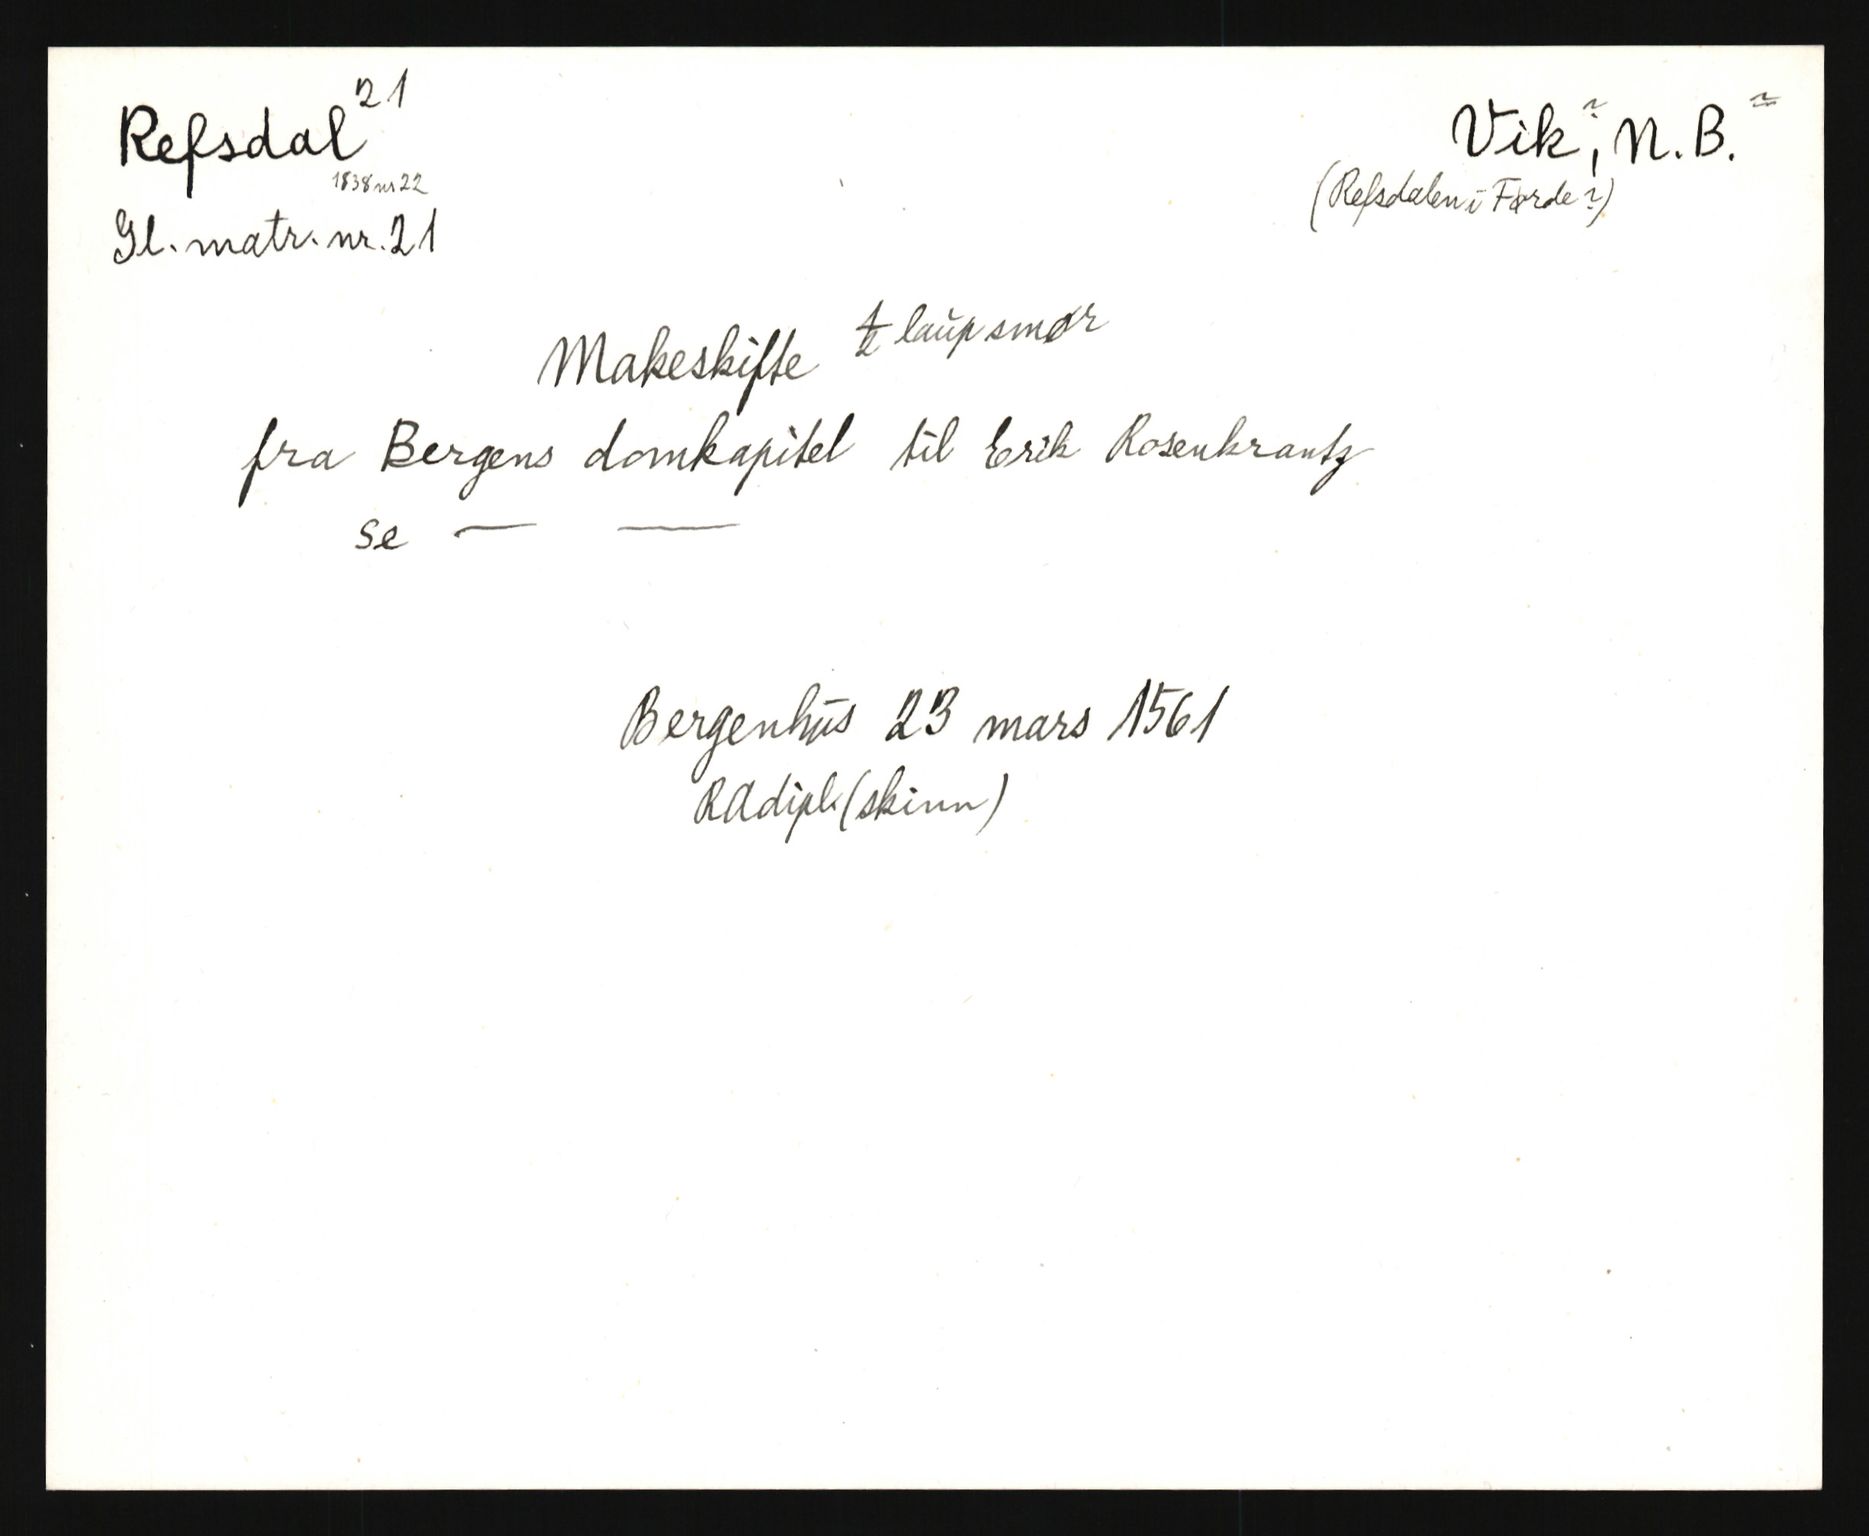 Refsdal 21
1838 nr 22
Gl. matr. nr. 21
Vik?, N. B. ?
(Refsdalen i Førde?)
Makeskifte 1/2 laup smør
fra Bergens domkapitel til Erik Rosenkrantz
se — —
Bergenhus 23 mars 1561
RA dipl. (skinn)